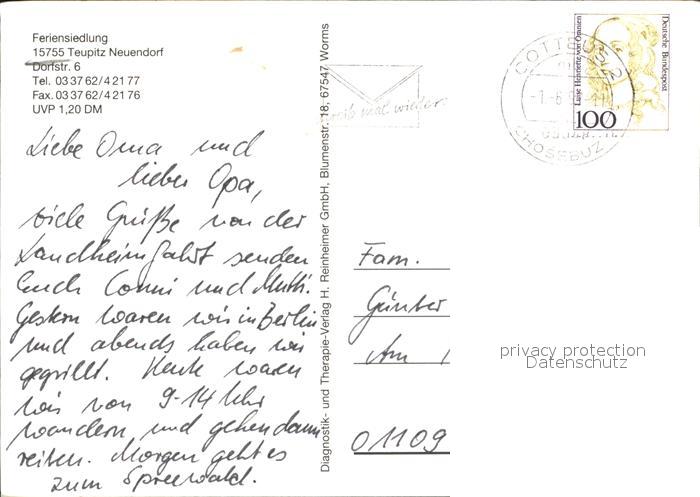 Feriensiedlung
15755 Teupitz Neuendorf
Dorfstr. 6
Tel. 03 37 62/4 21 77
Fax. 03 37 62/4 21 76
UVP 1,20 DM
Liebe Oma und
lieber Opa,
viele Grüße von der
Landheimfahrt senden
Euch Conni und Mutti.
Gestern waren wir in Berlin
und abends haben wir
gegrillt. Heute waren
wir von 9-14 Uhr
wandern und gehen dann
reiten. Morgen geht es
zum Spreewald.
Diagnostik- und Therapie-Verlag H. Reinheimer GmbH, Blumenstr. 18, 67547 Worms
mal wieder
COTTBUS 2
CHOSEBUZ
Luise Henriette von Oranien
Deutsche Bundespost
100
Fam.
Günter
Am
01109
privacy protection
Datenschutz